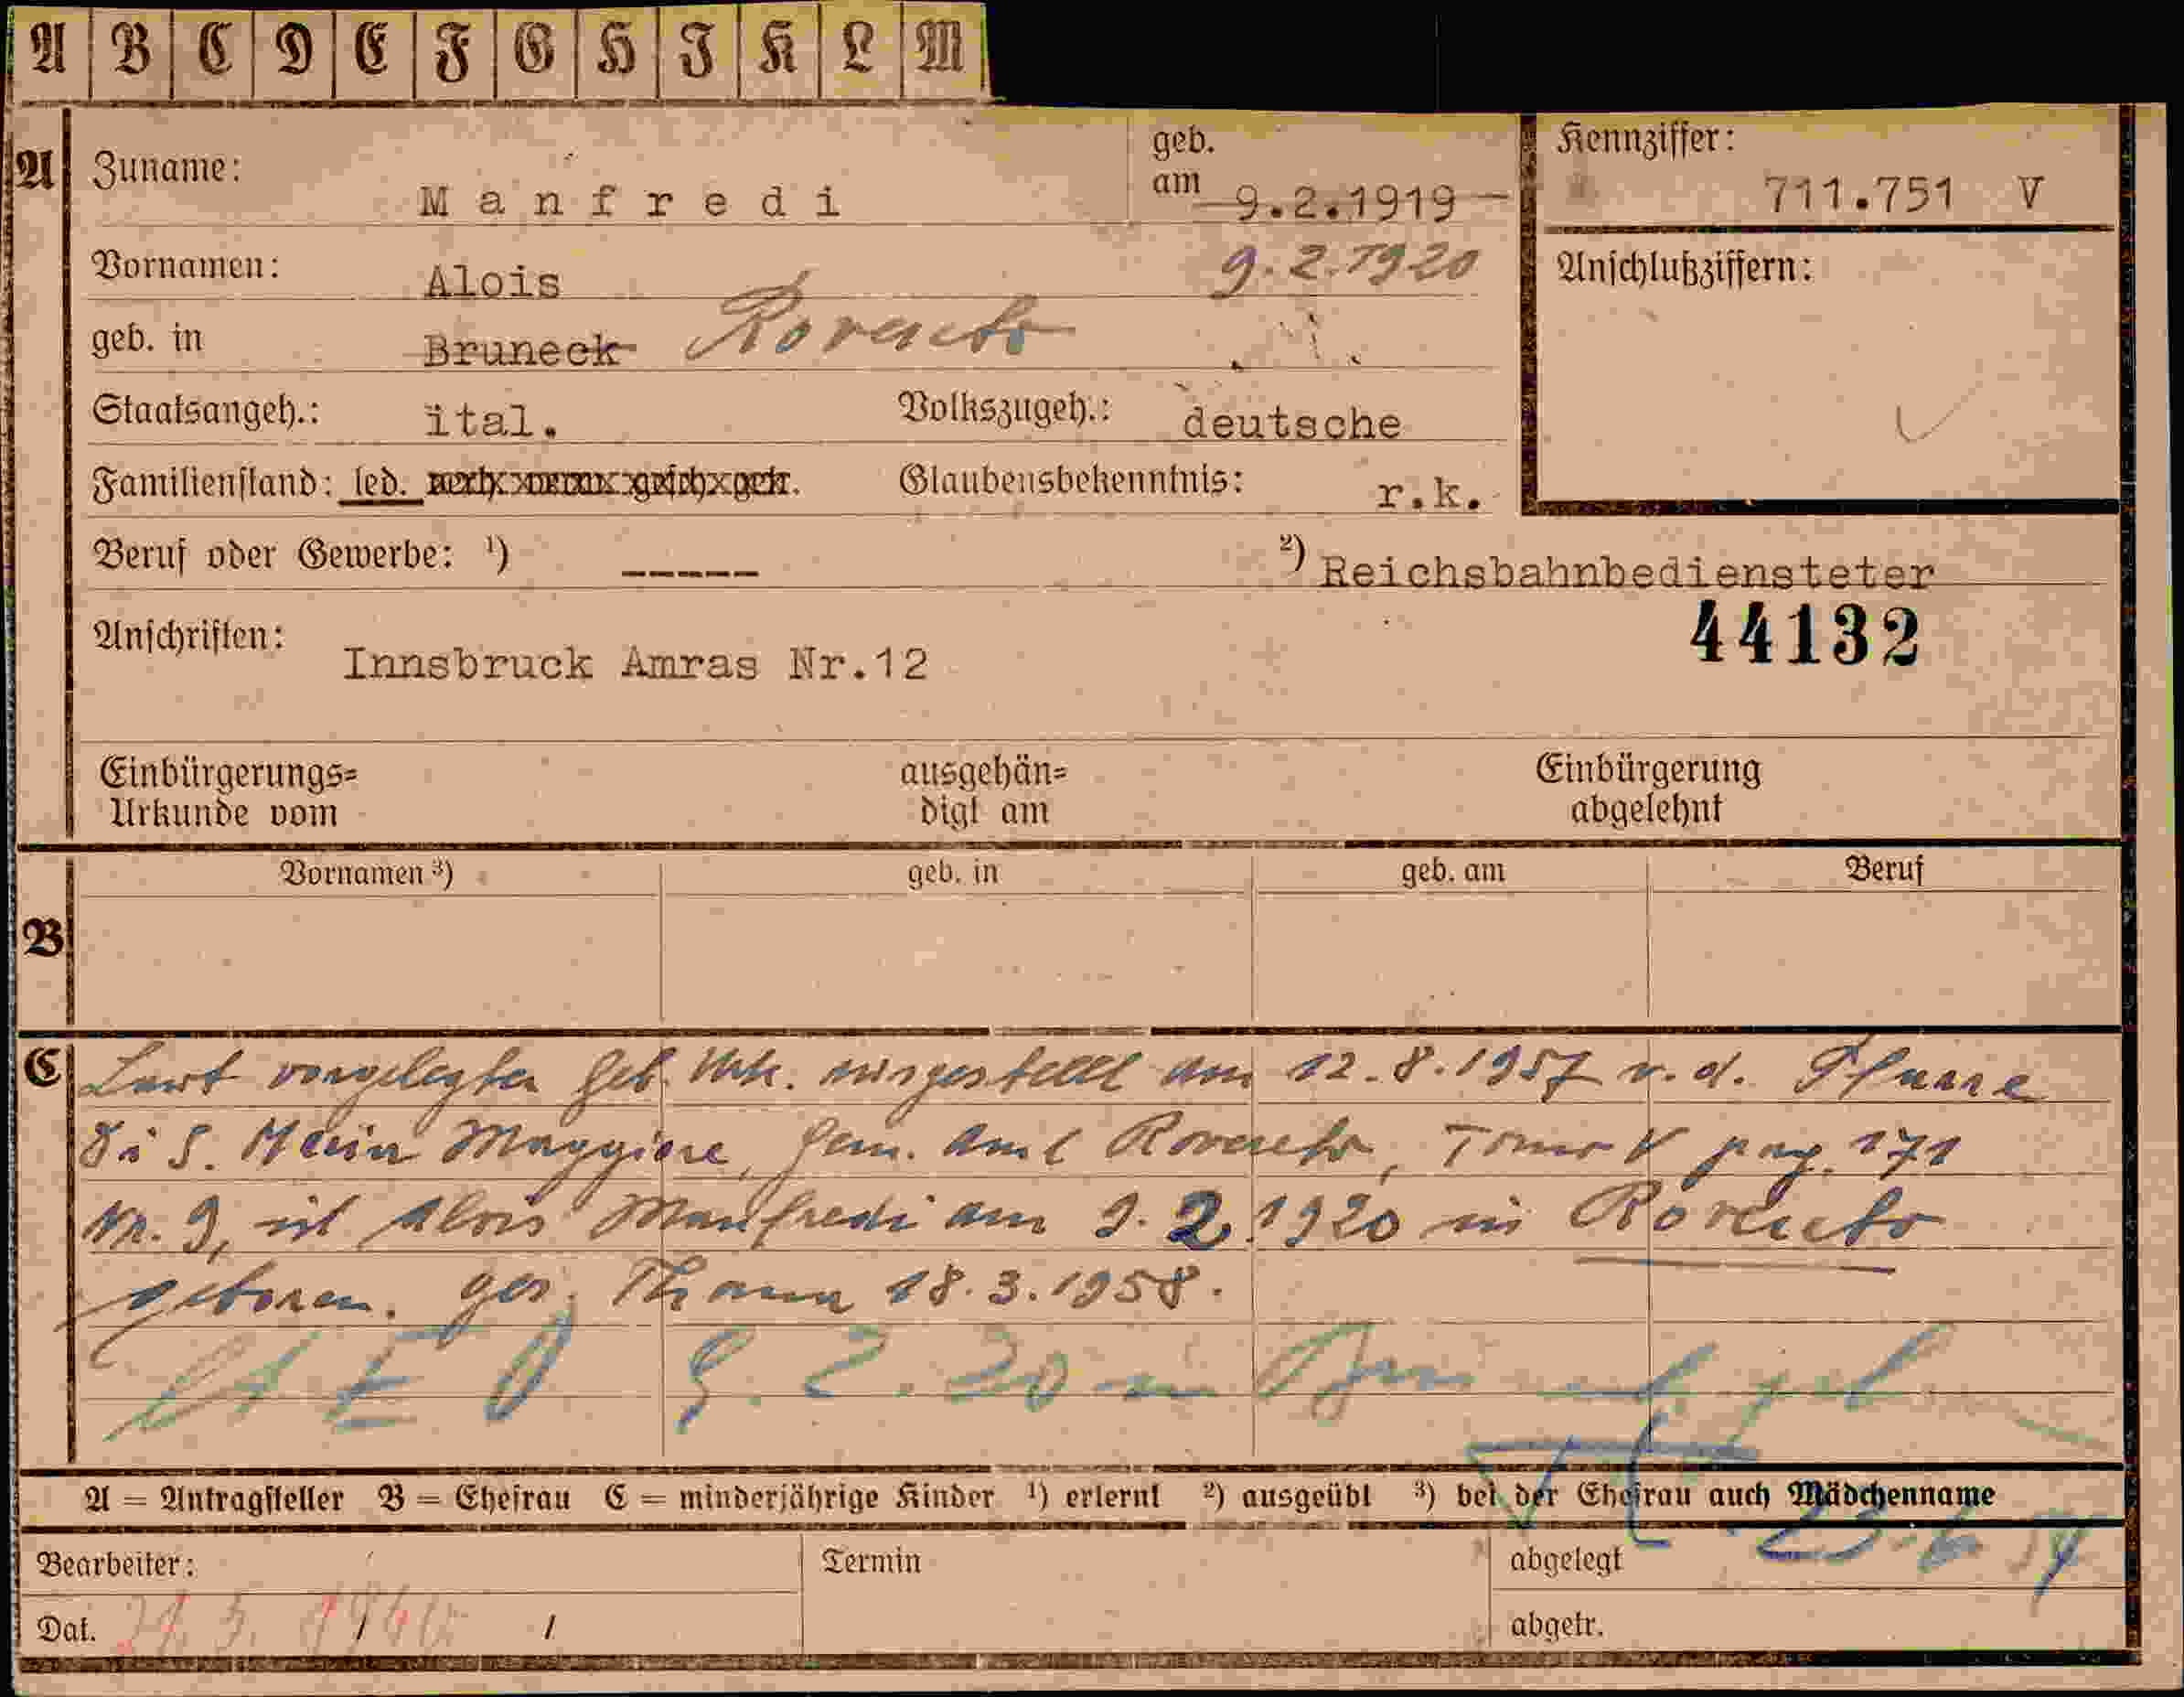 A B C D E F G H I K L M
A
Zuname: Manfredi
geb. am 9.2.1919
Kennziffer: 711.751 V
Vornamen: Alois
9.2.1920
Anschlußziffern:
geb. in Bruneck Rovereto
Staatsangeh.: ital. Volkszugeh.: deutsche
Familienstand: led. verh. verw. gesch. getr. Glaubensbekenntnis: r.k.
Beruf oder Gewerbe: ¹) ----- ²) Reichsbahnbediensteter
44132
Anschriften: Innsbruck Amras Nr.12
Einbürgerungs= Urkunde vom
ausgehän= digt am
Einbürgerung abgelehnt
B
Vornamen ³) geb. in geb. am Beruf
C
Laut vorgelegter Geb. Urk. ausgestellt am 12.8.1957 v.d. Pfarre
di S. Maria Maggiore, Gem. Amt Rovereto, Tomo V pag. 171
Nr. 9, ist Alois Manfredi am 9.2.1920 in Rovereto
geboren. gez. Thann 18.3.1958.
9.2.20 in geb.
A = Antragsteller B = Ehefrau C = minderjährige Kinder ¹) erlernt ²) ausgeübt ³) bei der Ehefrau auch Mädchenname
Bearbeiter: Termin abgelegt
Dat. / / abgetr.